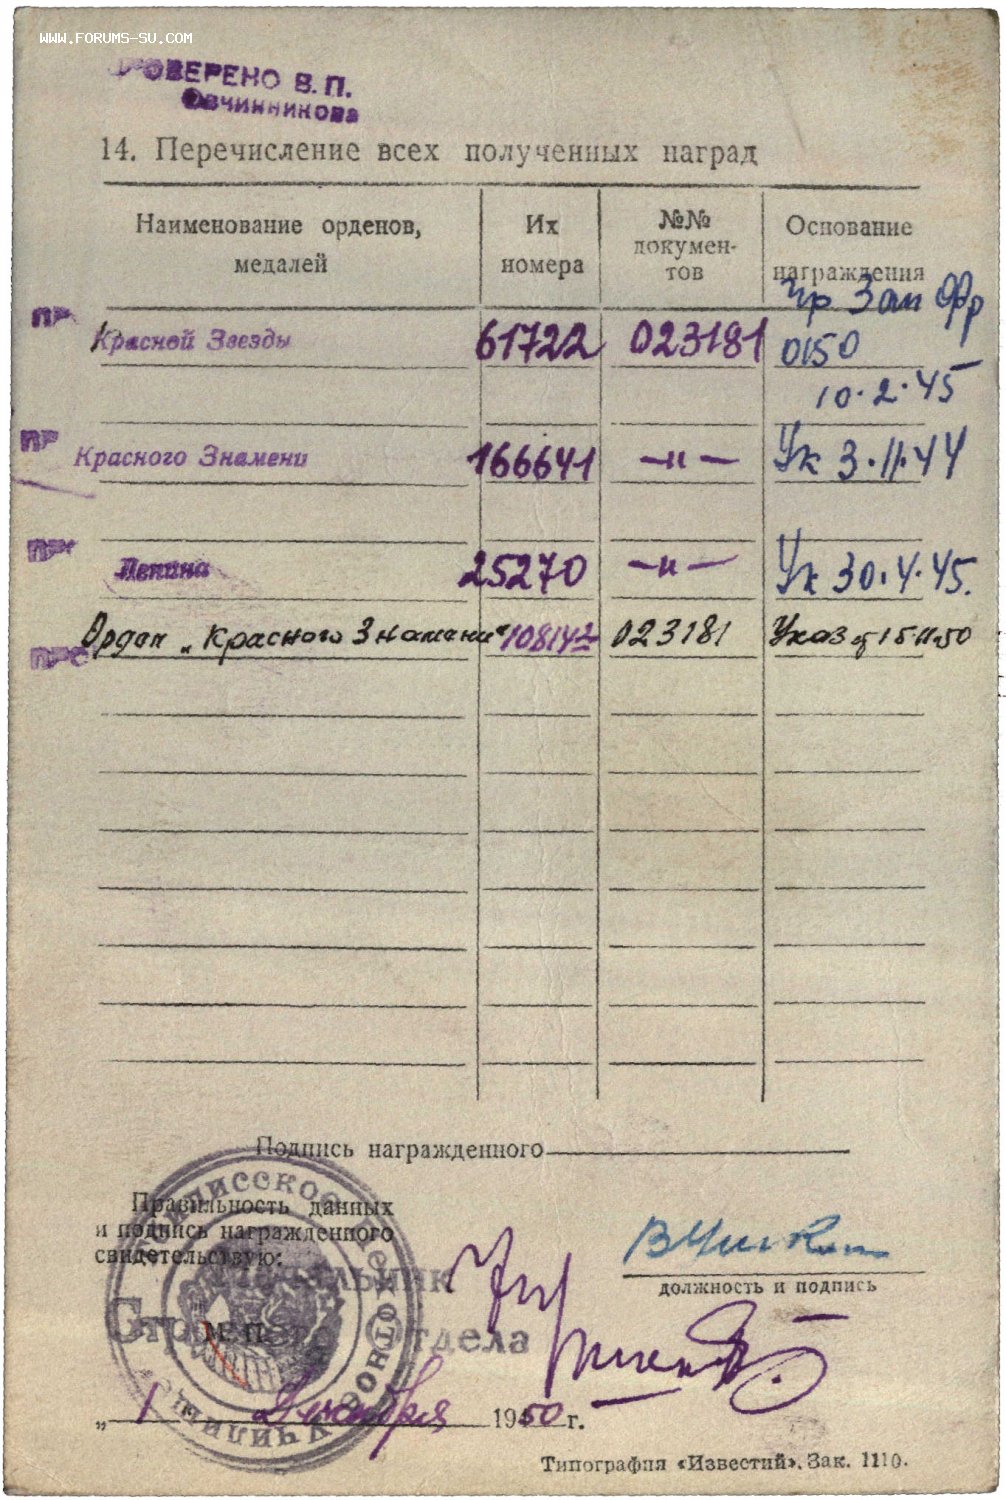 WWW.FORUMS-SU.COM
ПРОВЕРЕНО В.П.
Овчинникова
14. Перечисление всех полученных наград
Наименование орденов, медалей
Их номера
№№ документов
Основание награждения
Красной Звезды 61722 023181 Пр Зап Фр 0150 10.2.45
Красного Знамени 166641 —"— Ук 3.11.44
Ленина 25270 —"— Ук 30.4.45.
Орден „Красного Знамени" 108142 023181 Указ от 15 11 50
Подпись награжденного
Правильность данных
и подпись награжденного
свидетельствую:
Начальник
Строевого отдела
М. П.
должность и подпись
„ 1 " Декабря 1950 г.
Типография «Известий». Зак. 1110.